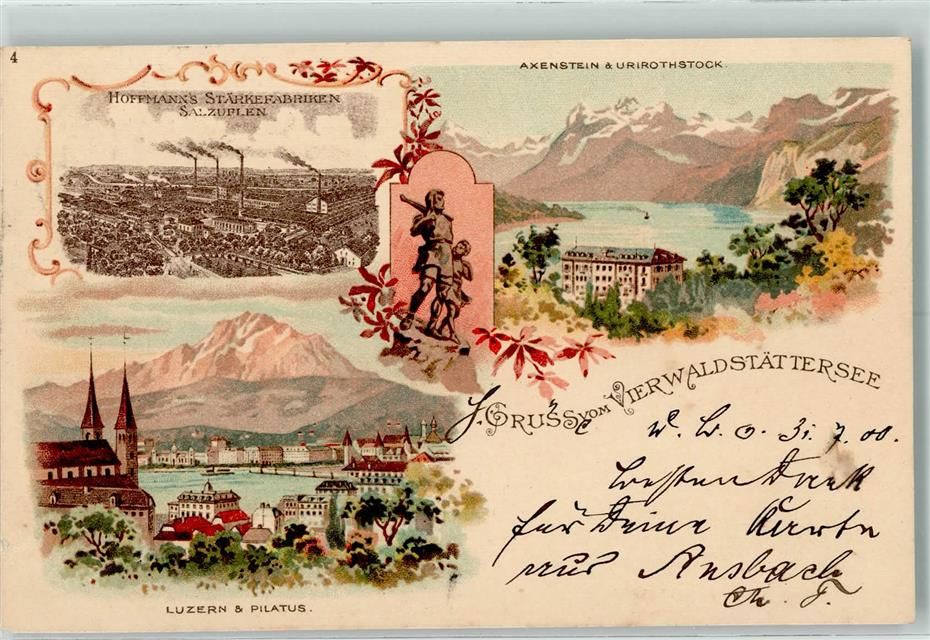 4
HOFFMANN'S STÄRKEFABRIKEN
SALZUFLEN
AXENSTEIN & URIROTHSTOCK.
GRUSS VOM VIERWALDSTÄTTERSEE
31.7.00.
besten Dank
für Deine Karte
aus Ansbach
Th. F.
LUZERN & PILATUS.